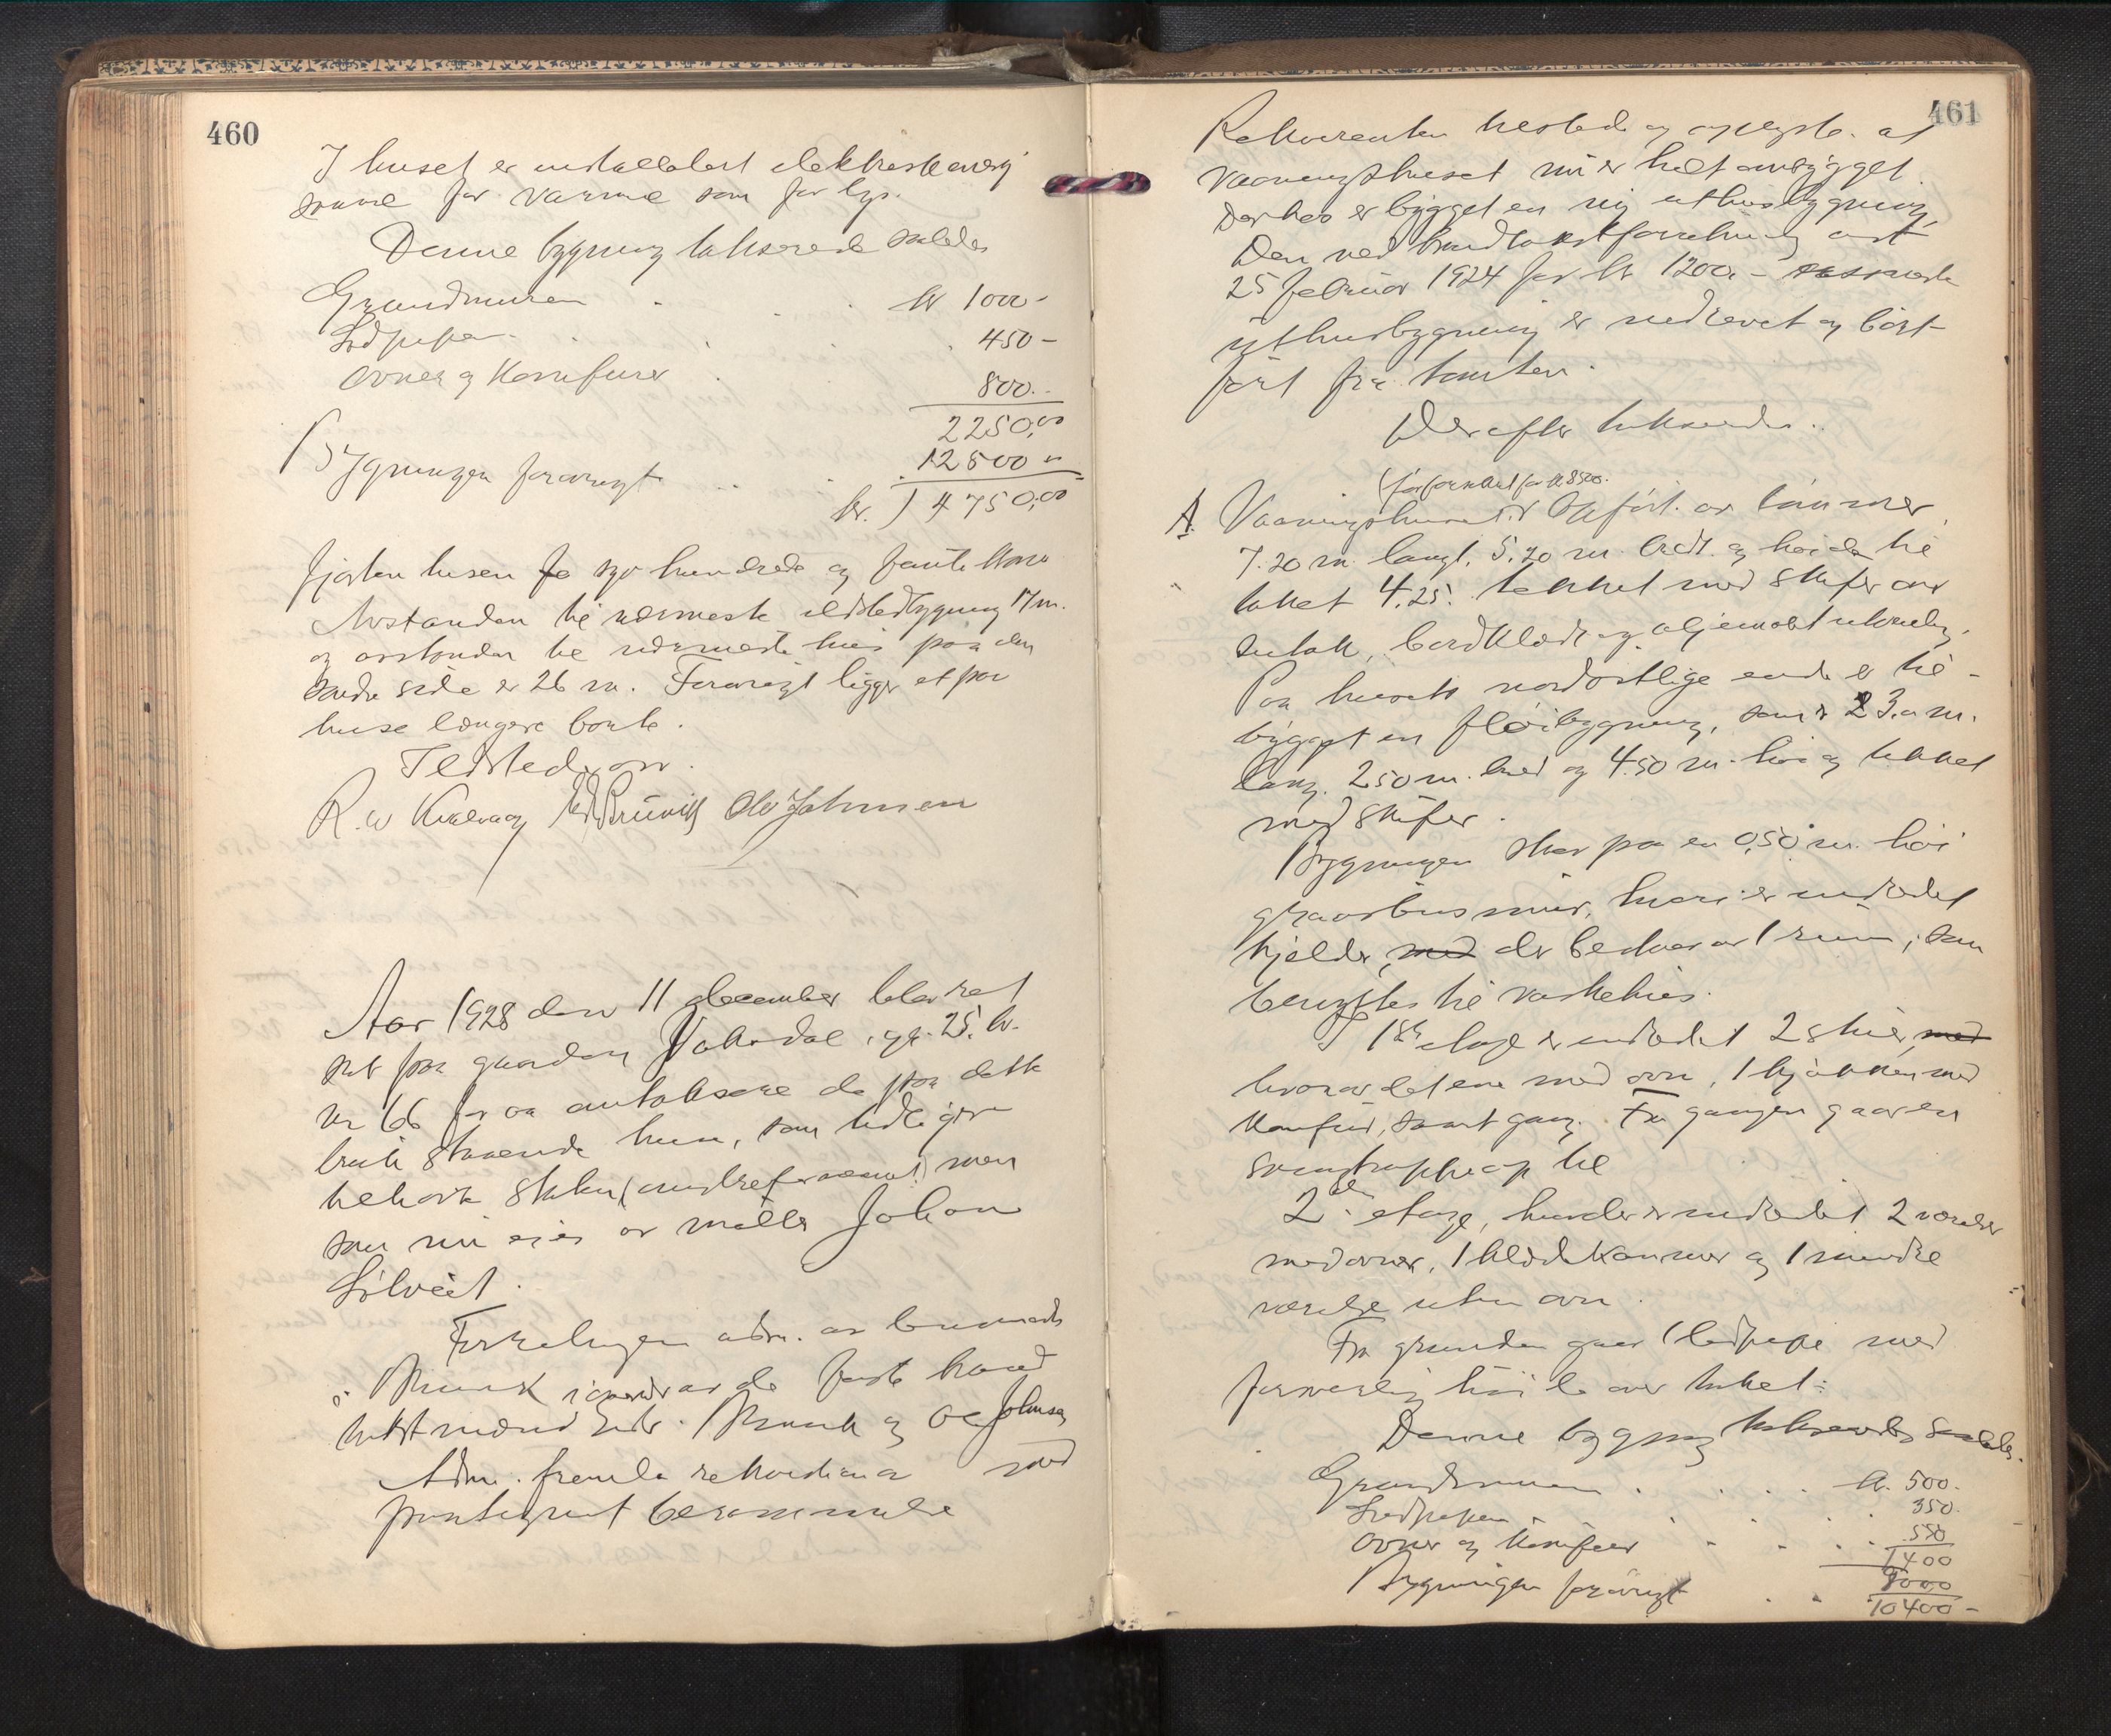 460
I huset er installert elektrisk energi
saavel for varme som for lys.
Denne bygning takseredes saaledes
Grundmuren kr 1000-
Ildpipen 450-
Ovner og Komfurer 800.-
2250,00
Bygningen forøvrigt 12500 "
kr. 14750,00
fjorten tusen syv hundrede og femti kroner
Avstanden til nærmeste ildstedbygning 17 m.
og avstanden til nærmeste hus paa den
andre side er 26 m. Forøvrigt ligger et par
huse længere borte.
Ildsted, ovn.
R. W Kvalvaag Ole Johnsen
Aar 1928 den 11 december blev ret
sat paa gaarden Vaksdal, gr. 25. br.
nr 66 for aa omtaksere de paa dette
bruk staaende huse, som tidligere
tilhørte Staten men
som nu eies av møller Johan
Sølvest.
Forretningen adm. av lensmand
Brunk i overvær av de faste brand
takstmænd Brunk og Ole Johnsen
Adm. fremla rekvisition med
paategnet berammelse
461
Rekvirenten tilstede og oplyste at
vaaningshuset nu er helt ombygget.
Derhos er bygget en ny uthusbygning.
Den ved brandtakstforretning avst
25 februar 1924 for kr 1200.-
uthusbygning er nedrevet og bort-
ført fra tomten.
Derefter takseredes:
(før forsikret for kr 8500.
A. Vaaningshuset opført av tømmer,
7.20 m. langt, 5.20 m. bredt og høide til
taket 4.25. tekket med skifer over
sutak, bordklædt og oljemalt utvendig.
Paa husets nordøstlige ende er til-
bygget en fløibygning, som er 3.0 m.
lang, 2.50 m. bred og 4.50 m. høi og tekket
med skifer.
Bygningen staar paa en 0,50 m. høi
graastensmur, hvori er indredet
kjelder, med der bestaar av 1 rum, som
benyttes til vaskehus.
I 1ste etage er indredet 2 stuer, med
hvorav det ene med ovn, 1 kjøkken med
komfur, samt gang. Fra gangen gaar en
svingtrappe op til
2den etage, hvorder er indredet 2 værelser
med ovner, 1 klædekammer og 1 mindre
værelse uten ovn.
Fra grunden gaar 1 ildpipe med
forsvarlig høide over taket.
Denne bygning takseredes saaledes.
Grundmuren kr. 500.
Ildpipen 350.
Ovner og Komfur 550
1400
Bygningen forøvrigt 9000
10400-